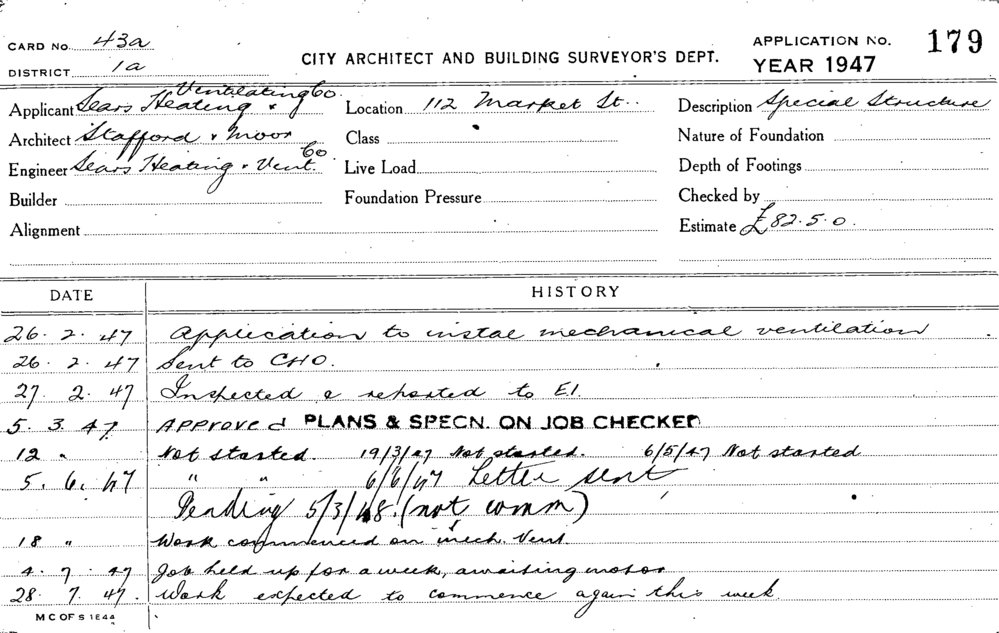 CARD No. 43a
DISTRICT 1a
CITY ARCHITECT AND BUILDING SURVEYOR'S DEPT.
APPLICATION No. 179
YEAR 1947
Applicant Sears Heating & Ventilating Co.
Location 112 Market St.
Description Special Structure
Architect Stafford & Moor
Class
Nature of Foundation
Engineer Sears Heating & Vent. Co
Live Load
Depth of Footings
Builder
Foundation Pressure
Checked by
Alignment
Estimate £82.5.0.
DATE HISTORY
26. 2. 47 Application to instal mechanical ventilation
26. 2. 47 Sent to CHO.
27. 2. 47 Inspected & reported to E.I.
5. 3. 47. APPROVED PLANS & SPECN. ON JOB CHECKED
12 " Not started. 19/3/47 Not started. 6/5/47 Not started
5. 6. 47 " " 6/6/47 Letter sent
Pending 5/3/48. (not comm)
18 " Work commenced on mech. Vent.
4. 7. 47 Job held up for a week, awaiting motor
28. 7. 47. Work expected to commence again this week
M C OF S 1844